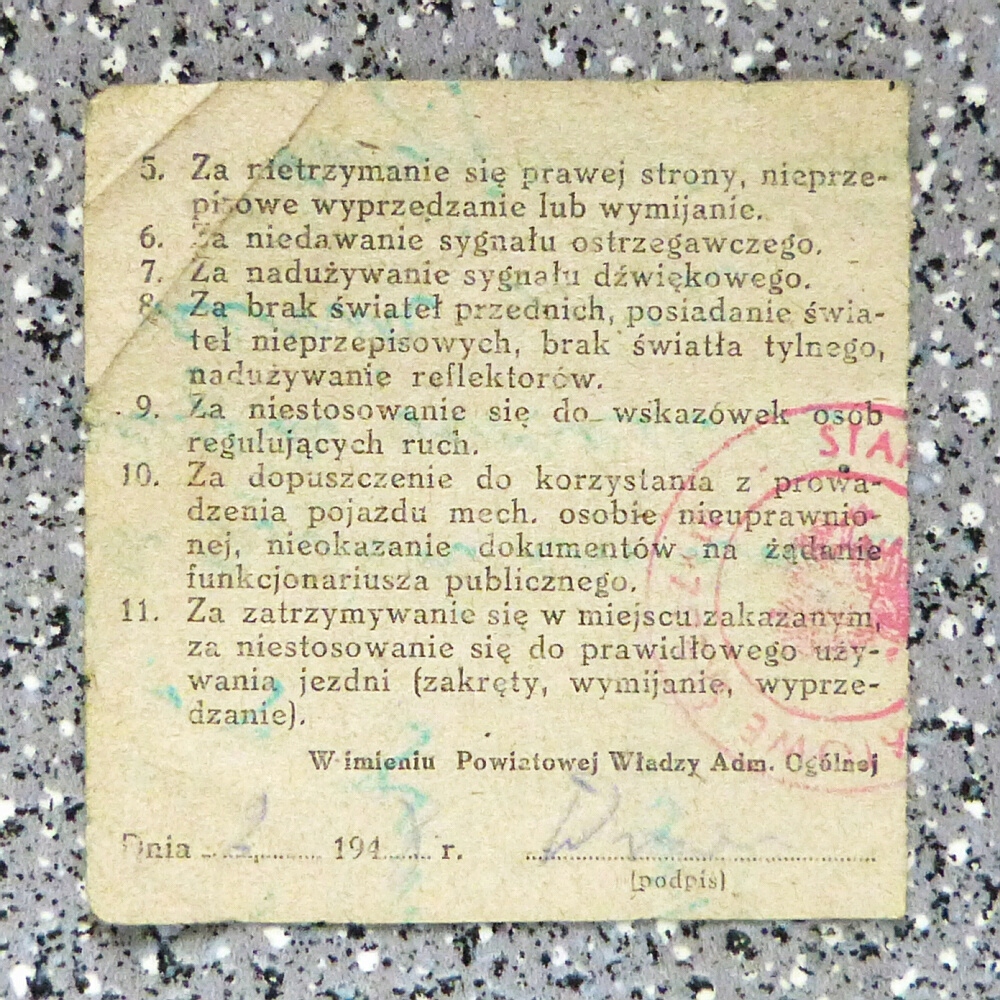 5. Za nietrzymanie się prawej strony, nieprze-
pisowe wyprzedzanie lub wymijanie.
6. Za niedawanie sygnału ostrzegawczego.
7. Za nadużywanie sygnału dźwiękowego.
8. Za brak świateł przednich, posiadanie świa-
teł nieprzepisowych, brak światła tylnego,
nadużywanie reflektorów.
9. Za niestosowanie się do wskazówek osób
regulujących ruch.
10. Za dopuszczenie do korzystania z prowa-
dzenia pojazdu mech. osobie nieuprawnio-
nej, nieokazanie dokumentów na żądanie
funkcjonariusza publicznego.
11. Za zatrzymywanie się w miejscu zakazanym,
za niestosowanie się do prawidłowego uży-
wania jezdni (zakręty, wymijanie, wyprze-
dzanie).
W imieniu Powiatowej Władzy Adm. Ogólnej
Dnia ............ 194...... r. ................................
(podpis)
STA